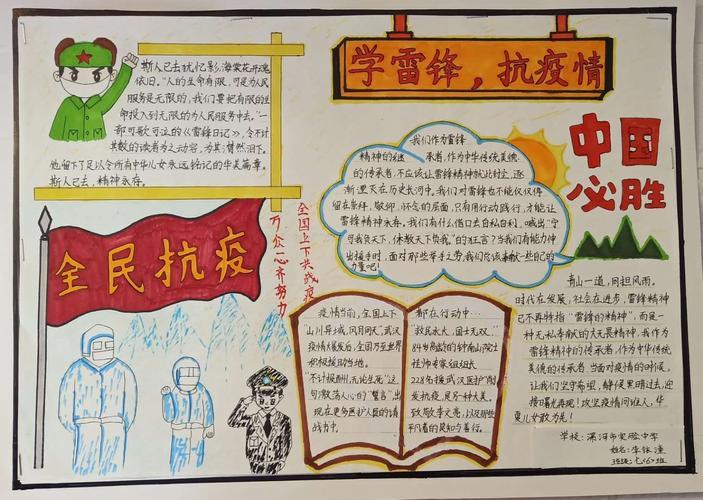 学雷锋，抗疫情
斯人已去犹忆影，海棠花开魂
依旧。"人的生命有限，可是为人民
服务是无限的，我们要把有限的生
命投入到无限的为人民服务中去。"一
部可歌可泣的《雷锋日记》，令不计
其数的读者为之动容，为其潸然泪下。
他留下了足以令所有中华儿女永远铭记的华美篇章。
斯人已去，精神永存。
全民抗疫
万众一心齐努力
全国上下共战疫
我们作为雷锋
精神的继 承者，作为中华传统美德
的传承者，不应该让雷锋精神就此封尘，逐
渐湮灭在历史长河中。我们对雷锋也不能仅仅停
留在崇拜、敬仰、怀念的层面，只有用行动践行，才能让
雷锋精神永存。我们有什么借口去自私自利，喊出"宁
可我负天下，休教天下负我"的狂言？当我们有能力伸
出援手时，面对那些举手之劳，我们应该奉献一些自己的
力量吧！
中国
必胜
疫情当前，全国上下
"山川异域，风月同天"，武汉
疫情爆发后，全国乃至世界
积极援助当地。
"不计报酬，无论生死"这
句激荡人心的"誓言"出
现在更多医护人员的请
战书中。
都在行动中…
"救民水火，国士无双。"
84岁高龄的钟南山院士
挂帅专家组组长
228名援武汉医护"痢"
发抗疫，是另一种美。
致敬李文亮，以及那些
平凡着的是知与善行。
青山一道，同担风雨。
时代在发展，社会在进步，雷锋精神
已不再特指"雷锋的精神"，而是一
种无私奉献的大无畏精神，我作为
雷锋精神的传承者，作为中华传统
美德的传承者，当面对疫情的时候，
让我们坚守希望，静候黑暗过去，迎
接曙光再现！攻坚疫情问谁人，华
夏儿女敢为先！
学校：漯河市实验中学
姓名：李
班级：七（6）班